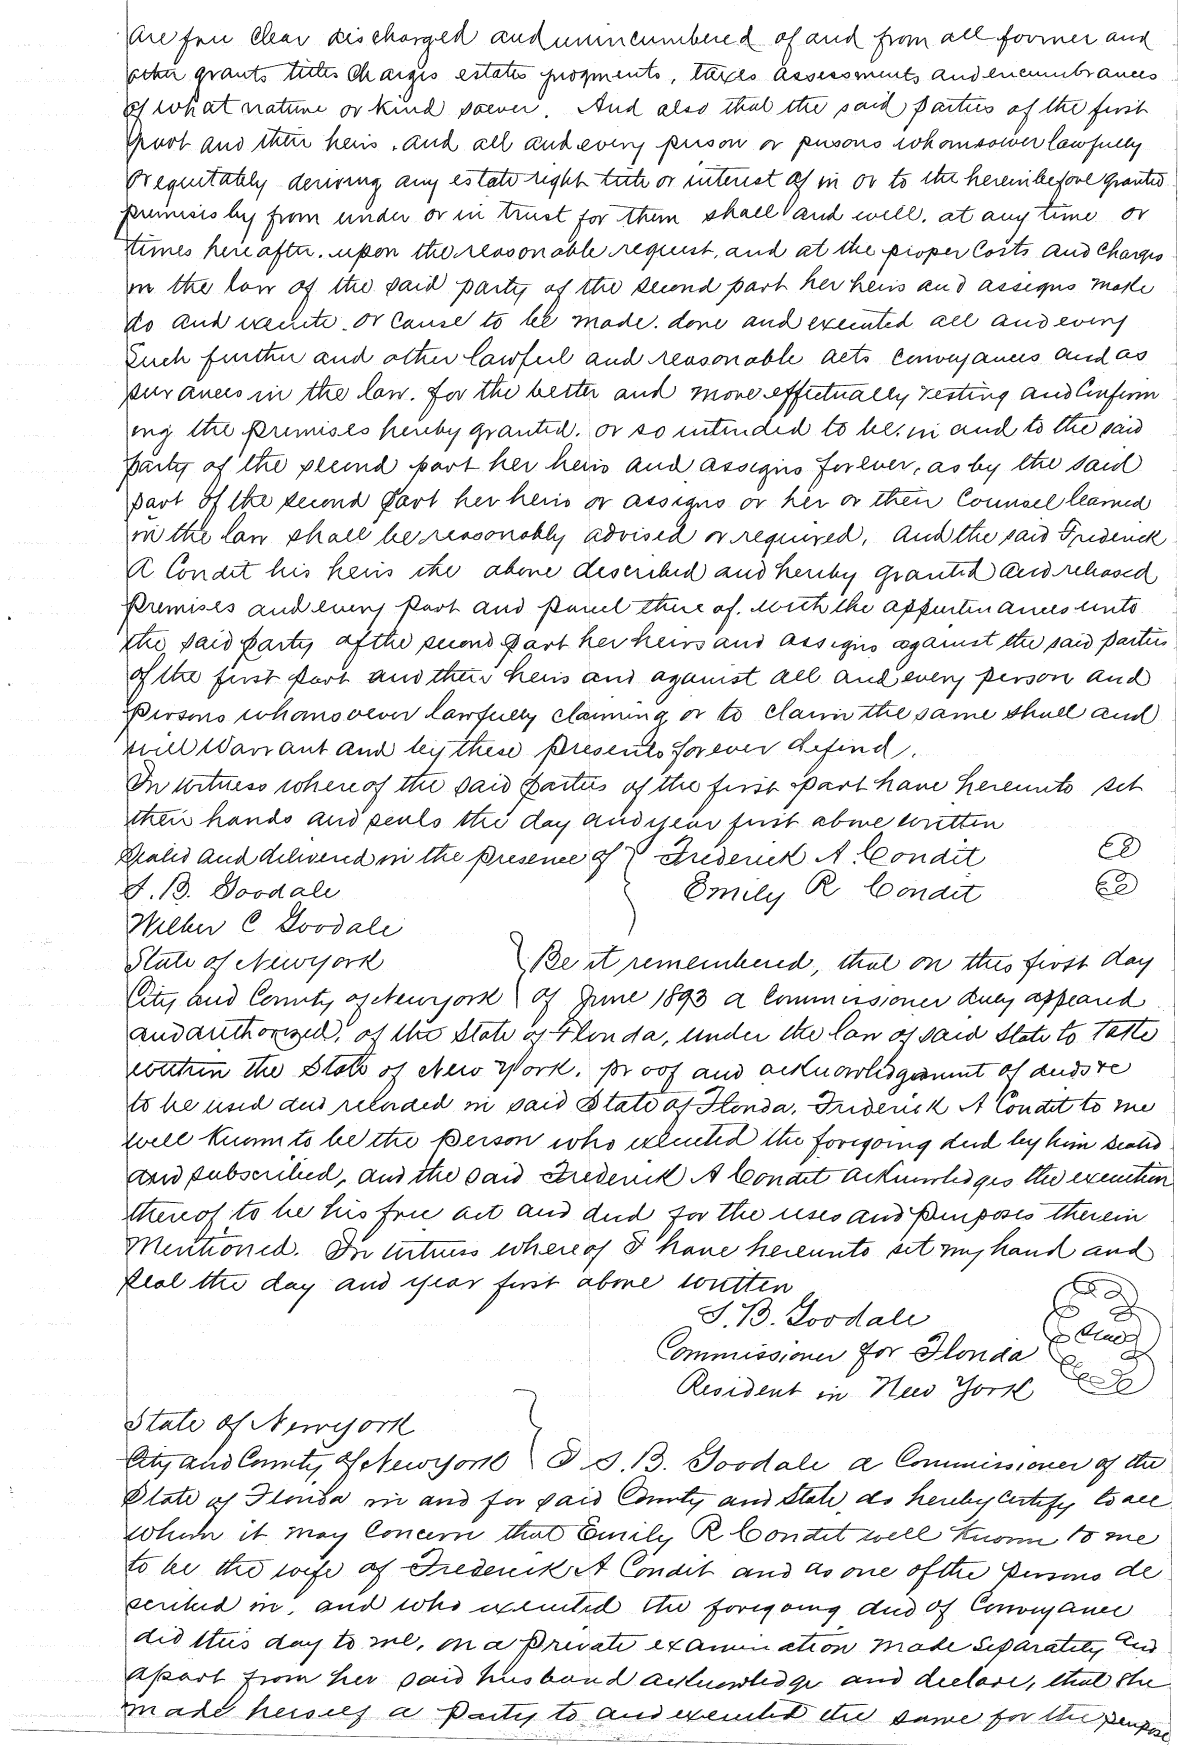 are free clear discharged and unincumbered of and from all former and
other grants titles charges estates jugments, taxes assessments and encumbrances
of what nature or kind soever. And also that the said parties of the first
part and their heirs. and all and every person or persons whomsoever lawfully
or equitably deriving any estate right title or interest of in or to the hereinbefore granted
premises by from under or in trust for them shall and will. at any time or
times hereafter. upon the reasonable request, and at the proper costs and charges
in the law of the said party of the second part her heirs and assigns make
do and execute. or cause to be made. done and executed all and every
Such further and other lawful and reasonable acts conveyances and as
surances in the law. for the better and more effectually vesting and Confirm
ing the premises hereby granted. or so intended to be. in and to the said
party of the second part her heirs and assigns forever, as by the said
part of the second part her heirs or assigns or her or their Counsel learned
in the law shall be reasonably advised or required, and the said Frederick
A Condit his heirs the above described and hereby granted and released
premises and every part and parcel there of. with the appurtenances unto
the said party of the second part her heirs and assigns against the said parties
of the first part and their heirs and against all and every person and
persons whomsoever lawfully claiming or to claim the same shall and
will Warrant and by these presents forever defend.
In witness whereof the said parties of the first part have hereunto set
their hands and seals the day and year first above written
Sealed and delivered in the presence of } Frederick A. Condit
S. B. Goodale } Emily R Condit
Wilber C Goodale
State of New york } Be it remembered, that on this first day
City and County of New york } of June 1893 a Commissioner duey appeared
and authorized, of the State of Florida, under the law of said State to take
within the State of New York. proof and acknowledgement of deeds &c
to be used and recorded in said State of Florida. Frederick A Condit to me
well known to be the person who executed the foregoing deed by him sealed
and subscribed, and the said Frederick A Condit acknowledges the execution
thereof to be his free act and deed for the uses and purposes therein
Mentioned. In witness whereof I have hereunto set my hand and
seal the day and year first above written
S. B. Goodale
Commissioner for Florida
Seal
Resident in New York
State of New york
City and County of New york } I S. B. Goodale a Commissioner of the
State of Florida in and for said County and State do hereby certify to all
whom it may concern that Emily R Condit well known to me
to be the wife of Frederick A Condit and as one of the persons de
scribed in, and who executed the foregoing deed of Conveyance
did this day to me, on a private examination made separately and
apart from her said husband acknowledge and declare, that she
made herself a party to and executed the same for the purpose